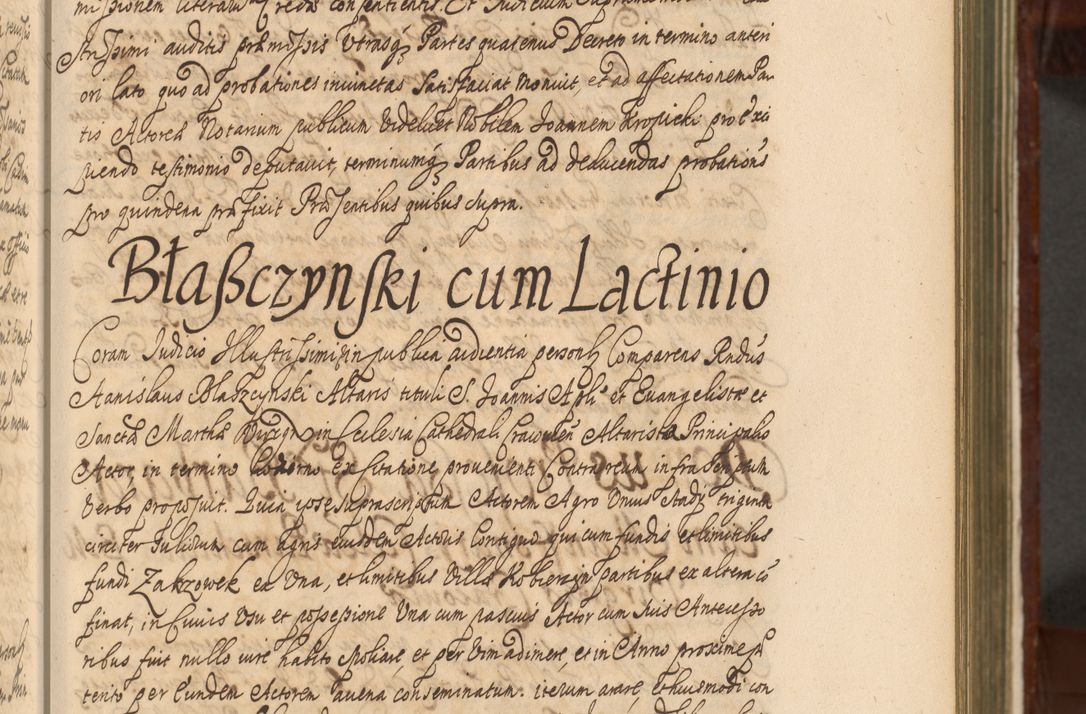 strissimi auditis præmissis Utrasq; Partes quatenus Decreto in termino anteri
ori lato quo ad probationes iniunctas Satisfaciat monuit, et ad affectationem Par
tis Actoreæ Notarium publicum videlicet Nobilem Joannem Kropicki pro exci
piendo testimonio deputavit, terminumq; Partibus ad deducendas probations
pro quindena præfixit Præsentibus quibus supra.
Błaßczynski cum Lactinio
Coram Judicio Illustrissimi in publica audientia personly Comparens Rndus
Stanislaus Błaszczynski Altaris tituli S. Joannis Apli et Evangelistæ et
Sanctæ Marthæ Virgin in Ecclesia Cathedrali Cracovien Altarista Principalis
Actor, in termino hodierno ex Citatione provenienti Contra reum infrascriptum
verbo proposuit. Quia ipse suprascriptum Actorem Agro Unius Stady triginta
circiter Sulcorum cum agris eiusdem Actoris Contiguo qui cum fundis et limitibus
fundi Zakrzowek ex una, et limitibus Villæ Kobierzyn partibus ex altera co
finat, in Cuius Usu et possessione Una cum pascuis Actor cum suis Antecesso
ribus fuit nullo iure habito spoliare, et per Vim adimere, et in Anno proxime præ
terito per Eundem Actorem avena conseminatum. iterum arare, et huiusmodi con